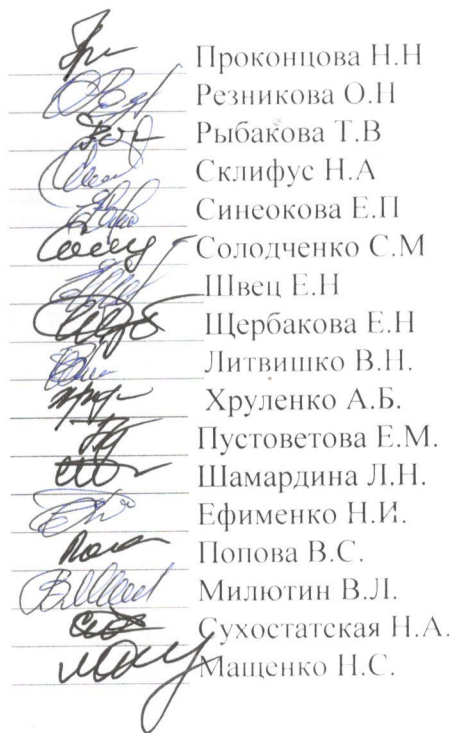 Проконцова Н.Н
Резникова О.Н
Рыбакова Т.В
Склифус Н.А
Синеокова Е.П
Солодченко С.М
Швец Е.Н
Щербакова Е.Н
Литвишко В.Н.
Хруленко А.Б.
Пустоветова Е.М.
Шамардина Л.Н.
Ефименко Н.И.
Попова В.С.
Милютин В.Л.
Сухостатская Н.А.
Мащенко Н.С.